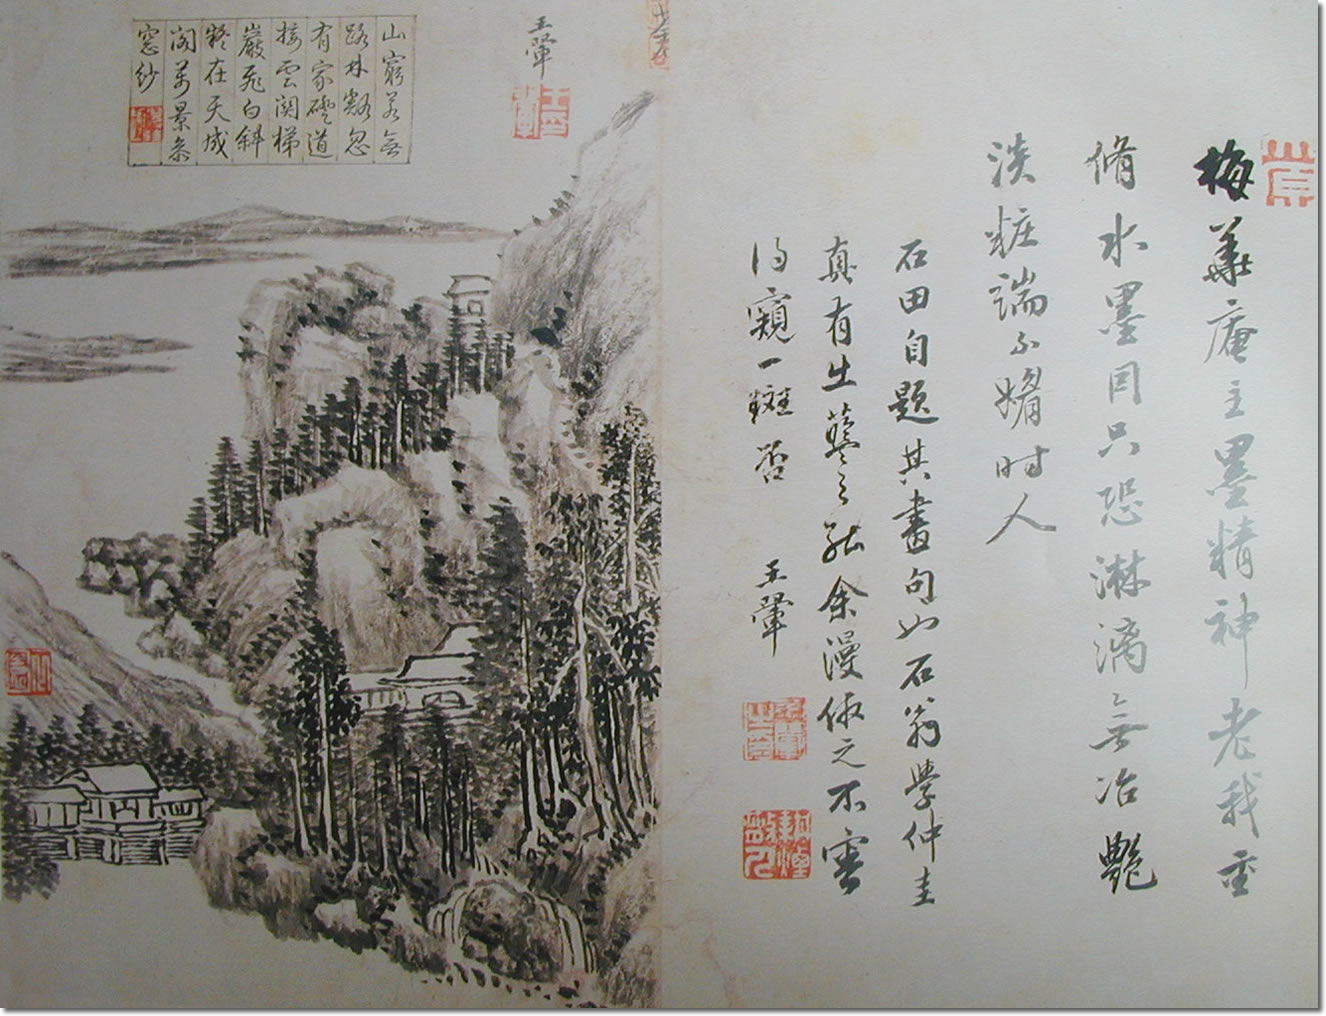 梅華庵主墨精神老我重
脩水墨同只恐淋漓無冶艷
淡粧端不媚時人
石田自題其畫句也石翁學仲圭
真有出藍之能余漫仿之不審
得窺一斑否
王翬
王翬
山窮若無
路林豁忽
有家磴道
接雲関梯
巖飛白斜
凝在天成
閣萬景叅
窓紗